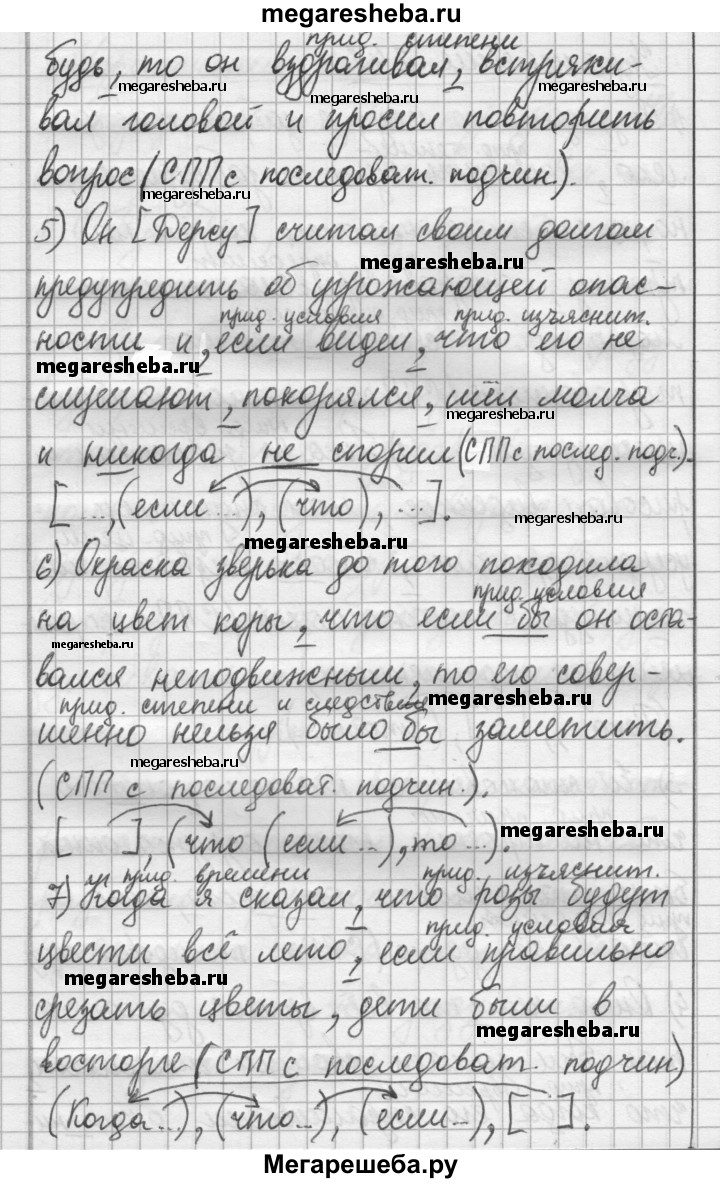 megaresheba.ru
прид. степени
будь, то он вздрагивал, встряхи-
megaresheba.ru megaresheba.ru megaresheba.ru
вал головой и просил повторить
вопрос (СПП с последоват. подчин.).
megaresheba.ru
5) Он [Дерсу] считал своим долгом
megaresheba.ru
предупредить об угрожающей опас-
прид. условия прид. изъяснит.
ности и, если видел, что его не
megaresheba.ru
слушают, покорялся, шёл молча
megaresheba.ru
и никогда не спорил (СПП с послед. подч.).
[..., (если ...), (что), ...].
megaresheba.ru
megaresheba.ru
6) Окраска зверька до того походила
прид. условия
на цвет коры, что если бы он оста-
megaresheba.ru
вался неподвижным, то его совер-
прид. степени и следствия
megaresheba.ru
шенно нельзя было бы заметить.
megaresheba.ru
(СПП с последоват. подчин.).
[ ], (что (если ...), то ...).
megaresheba.ru
прид. времени прид. изъяснит.
7) Когда я сказал, что розы будут
прид. условия
цвести всё лето, если правильно
megaresheba.ru
срезать цветы, дети были в
megaresheba.ru
восторге (СПП с последоват. подчин)
(Когда ...), (что ...), (если ..), [ ].
Мегарешеба.ру